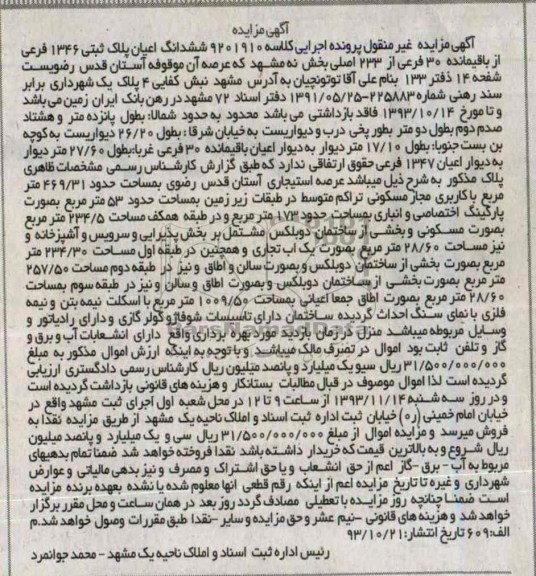 آگهی مزایده
آگهی مزایده غیر منقول پرونده اجرایی کلاسه ۹۲۰۱۹۱۰ ششدانگ اعیان پلاک ثبتی ۱۳۴۶ فرعی
از باقیمانده ۳۰ فرعی از ۲۳۳ اصلی بخش نه مشهد که عرصه آن موقوفه آستان قدس رضویست
صفحه ۱۴ دفتر ۱۳۳ بنام علی آقا توتونچیان به آدرس مشهد نبش کفایی ۴ پلاک یک شهرداری برابر
سند رهنی شماره ۲۲۵۸۸۳-۱۳۹۱/۰۵/۲۵ دفتر اسناد ۷۲ مشهد در رهن بانک ایران زمین می باشد
و تا مورخ ۱۳۹۳/۱۰/۱۴ فاقد بازداشتی می باشد محدود به حدود شمالا: بطول پانزده متر و هشتاد
صدم دوم بطول دو متر بطور پخی درب و دیواریست به خیابان شرقا: بطول ۲۶/۲۰ دیواریست به کوچه
بن بست جنوبا: بطول ۱۷/۱۰ متر دیوار به دیوار اعیان باقیمانده ۳۰ فرعی غربا: بطول ۲۷/۶۰ متر دیوار
به دیوار اعیان ۱۳۴۷ فرعی حقوق ارتفاقی ندارد که طبق گزارش کارشناس رسمی مشخصات ظاهری
پلاک مذکور به شرح ذیل میباشد عرصه استیجاری آستان قدس رضوی بمساحت حدود ۴۶۹/۳۱ متر
مربع با کاربری مجاز مسکونی تراکم متوسط در طبقات زیر زمین بمساحت حدود ۵۳ متر مربع بصورت
پارکینگ اختصاصی و انباری بمساحت حدود ۱۷۳ متر مربع و در طبقه همکف مساحت ۲۳۴/۵ متر مربع
بصورت مسکونی و بخشی از ساختمان دوبلکس مشتمل بر بخش پذیرایی و سرویس و آشپزخانه و
نیز مساحت ۲۸/۶۰ متر مربع بصورت یک اب تجاری و همچنین در طبقه اول مساحت ۲۳۴/۳۰ متر
مربع بصورت بخشی از ساختمان دوبلکس و بصورت سالن و اطاق و نیز در طبقه دوم مساحت ۲۵۷/۵۰
متر مربع بصورت بخشی از ساختمان دوبلکس و بصورت اطاق و سالن و نیز در طبقه سوم بمساحت
۲۸/۶۰ متر مربع بصورت اطاق جمعا اعیانی بمساحت ۱۰۰۹/۵۰ متر مربع با اسکلت نیمه بتن و نیمه
فلزی با نمای سنگ احداث گردیده ساختمان دارای تاسیسات شوفاژ و کولر گازی و دارای رادیاتور و
وسایل مربوطه میباشد منزل در زمان بازدید مورد بهره برداری واقع دارای انشعابات آب و برق و
گاز و تلفن ثابت بود اموال در تصرف مالک میباشد و با توجه به اینکه ارزش اموال مذکور به مبلغ
۳۱/۵۰۰/۰۰۰/۰۰۰ ریال سیو یک میلیارد و پانصد میلیون ریال کارشناس رسمی دادگستری ارزیابی
گردیده است لذا اموال موصوف در قبال مطالبات بستانکار و هزینه های قانونی بازداشت گردیده است
و در روز سه شنبه ۱۳۹۳/۱۱/۱۴ از ساعت ۹ تا ۱۲ در محل شعبه اول اجرای ثبت مشهد واقع در
خیابان امام خمینی (ره) خیابان ثبت اداره ثبت اسناد و املاک ناحیه یک مشهد از طریق مزایده نقدا به
فروش میرسد و مزایده اموال از مبلغ ۳۱/۵۰۰/۰۰۰/۰۰۰ ریال سی و یک میلیارد و پانصد میلیون
ریال شروع و به بالاترین قیمت که خریدار داشته باشد نقدا فروخته خواهد شد ضمنا تمام بدهیهای
مربوط به آب - برق - گاز اعم از حق انشعاب و یا حق اشتراک و مصرف و نیز بدهی مالیاتی و عوارض
شهرداری و غیره تا تاریخ مزایده اعم از اینکه رقم قطعی انها معلوم شده یا نشده بعهده برنده مزایده
است ضمنا چنانچه روز مزایده با تعطیلی مصادف گردد روز بعد در همان ساعت و محل مقرر برگزار
خواهد شد و هزینه های قانونی - نیم عشر و حق مزایده و سایر - نقدا طبق مقررات وصول خواهد شد. م
الف: ۶۰۹ تاریخ انتشار: ۹۳/۱۰/۲۱
رئیس اداره ثبت اسناد و املاک ناحیه یک مشهد - محمد جوانمرد